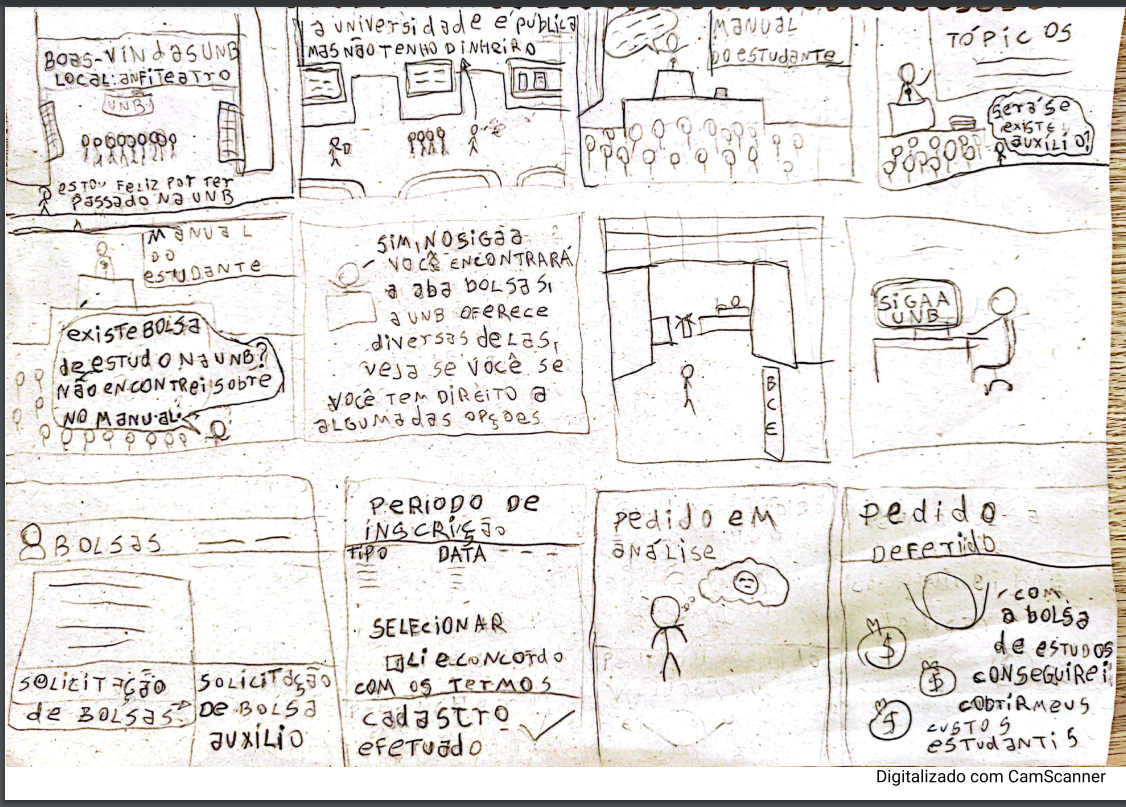 BOAS-VINDAS UNB
LOCAL: ANFITEATRO
UNB
ESTOU FELIZ POR TER
PASSADO NA UNB
a universidade é pública
MAS NÃO TENHO DINHEIRO
MANUAL
DO estudante
TÓPICOS
será se
existe
auxílio?
MANUAL
DO
estudante
existe BOLSA
de estudo na UNB?
NÃO encontrei sobre
NO MANUAL.
SIM, NO SIGAA
VOCÊ ENCONTRARÁ
a aba BOLSAS,
a UNB OFERECE
diversas delas,
veja se você se
VOCÊ TEM DIREITO a
ALGUMA das OPÇÕES
BCE
SIGAA
UNB
BOLSAS
SOLICITAÇÃO
de BOLSAS
SOLICITAÇÃO
DE BOLSA
AUXÍLIO
PERIODO DE
INSCRIÇÃO
TIPO DATA
SELECIONAR
LI e CONCORDO
COM OS TERMOS
cadastro
efetuado
Pedido eM
análise
Pedido
DEFERIDO
COM
a bolsa
de estudos
CONSEGUIREI
COBTIR MEUS
CUSTOS
estudantis
Digitalizado com CamScanner